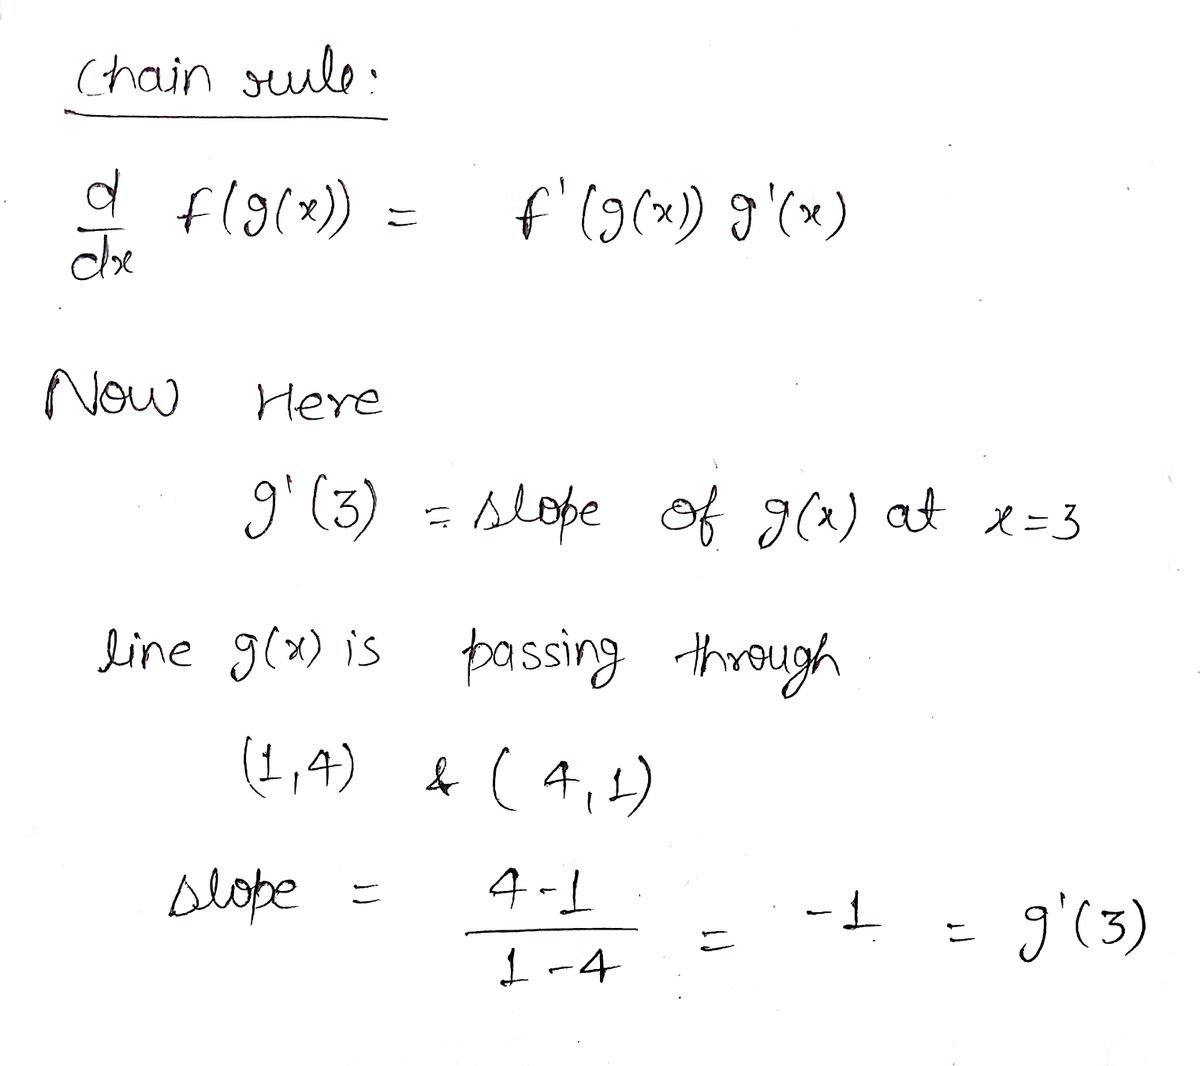 Chain rule:
d/dx f(g(x)) = f'(g(x)) g'(x)
Now Here
g'(3) = slope of g(x) at x=3
line g(x) is passing through
(1,4) & (4,1)
slope = 4-1/1-4 = -1 = g'(3)